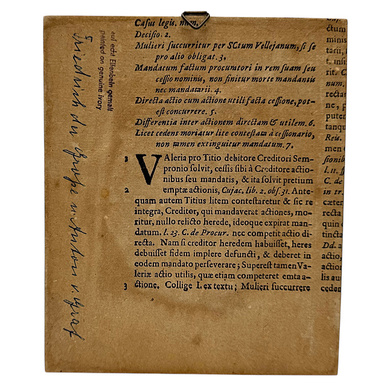 Casus legis. num. 1.
Decisio. 2.
Mulieri succurritur per SCtum Vellejanum, si se
pro alio obligat. 3.
Mandatum factum procuratori in rem suam seu
cessio nominis, non finitur morte mandantis
nec mandatarii. 4.
Directa actio cum actione utili facta cessione, pot-
est concurrere. 5.
Differentia inter actionem directam & utilem. 6.
Licet cedens moriatur lite contestatâ à cessionario,
non tamen extinguitur mandatum. 7.
1 VAleria pro Titio debitore Creditori Sem-
pronio solvit, cessis sibi à Creditore actio-
nibus seu mandatis, & ita solvit pretium
2 emptæ actionis, Cujac. lib. 2. obs. 31. Ante-
quam autem Titius litem contestaretur & sic re
integra, Creditor, qui mandaverat actiones, mo-
ritur, nullo relicto herede, ideoque expirat man-
datum. l. 23. C. de Procur. nec competit actio di-
recta. Nam si creditor heredem habuisset, heres
debuisset fidem implere defuncti, & deberet in
eodem mandato perseverare; Superest tamen Va-
leriæ actio utilis, quæ etiam competeret emta a-
3 ctione. Collige Lex textu; Mulieri succurrere
auf echt Elfenbein gemalt
painted on genuine Ivory
Friedrich der Große
Anton v. Graf